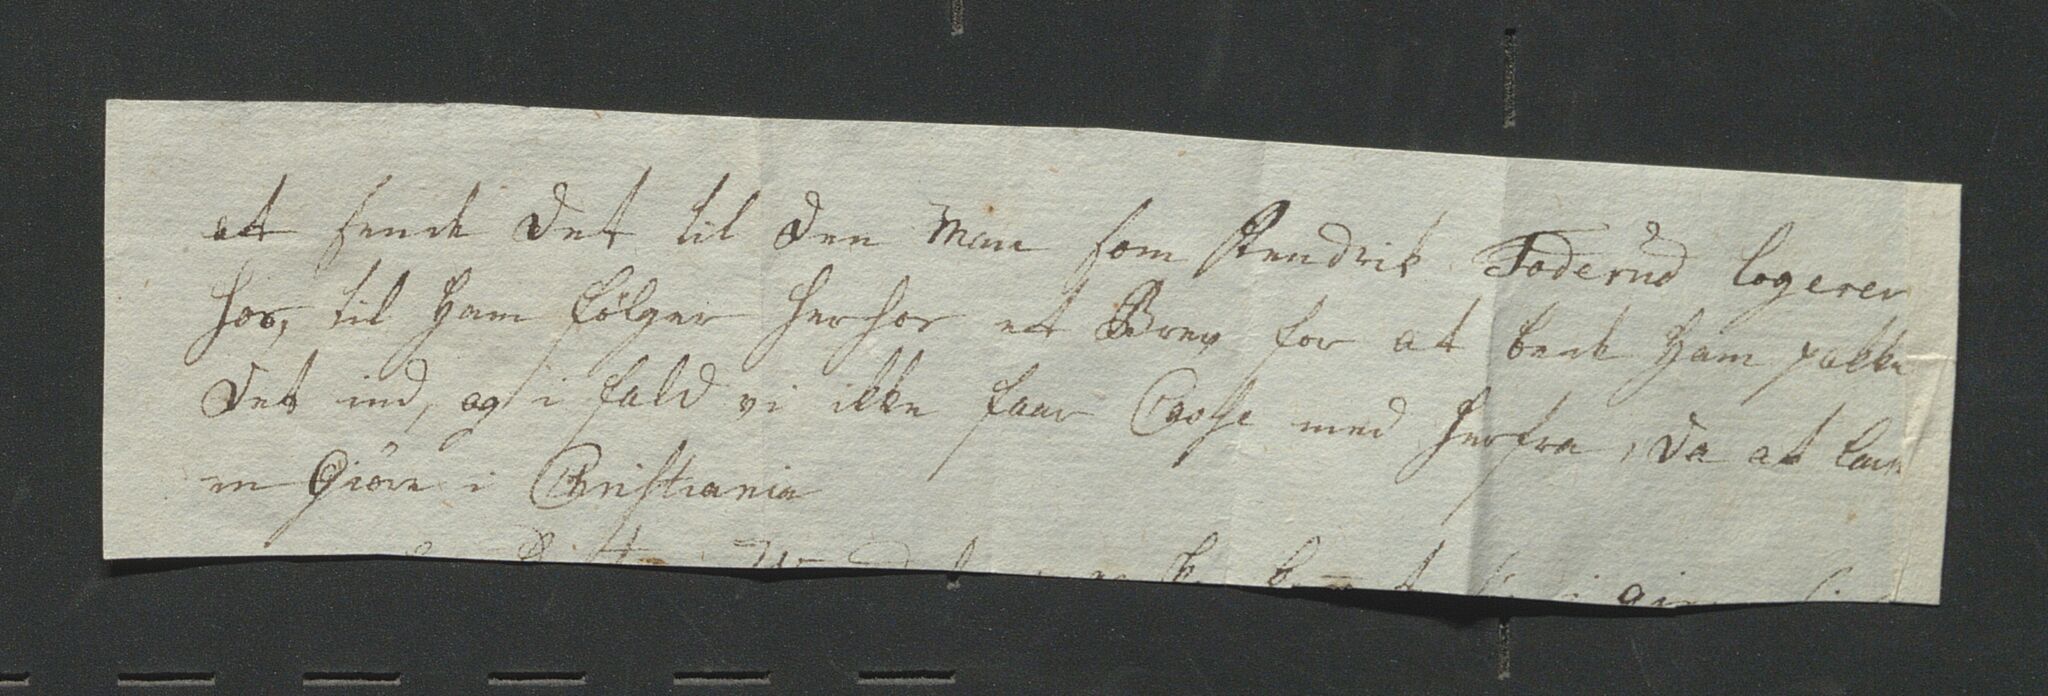 at sende det til den Man som Hendrik Foderud logerer
hos, til Ham følger herhos et Brev for at bede Ham pakke
det ind, og i fald vi ikke faar Casse med herfra, da at lade
en Giøre i Christiania